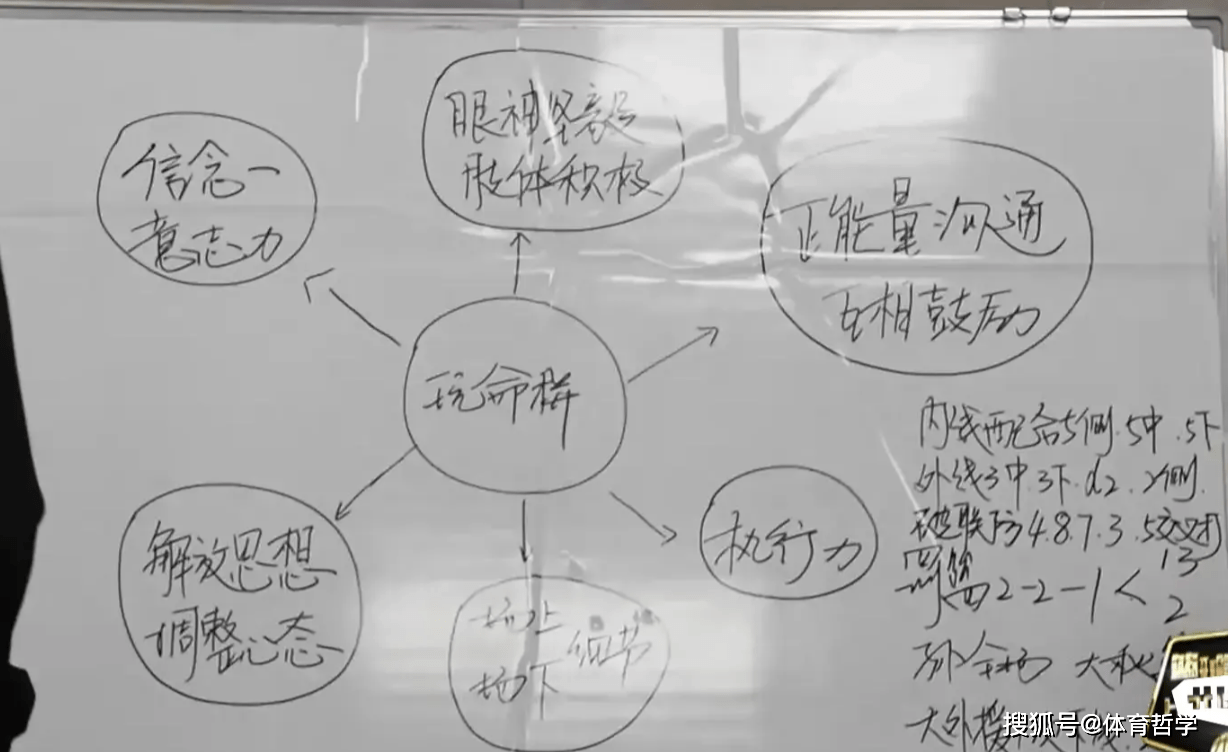 眼神坚毅
肢体积极
信念一
意志力
正能量沟通
互相鼓励
玩命拼
解放思想
调整心态
场上
场下
细节
执行力
内线配合5侧.5中.5下
外线3中.3下.d2.2侧.
联防4.8.7.3.5交叉
2-2-1<
13
2
全场
大外援
搜狐号@体育哲学